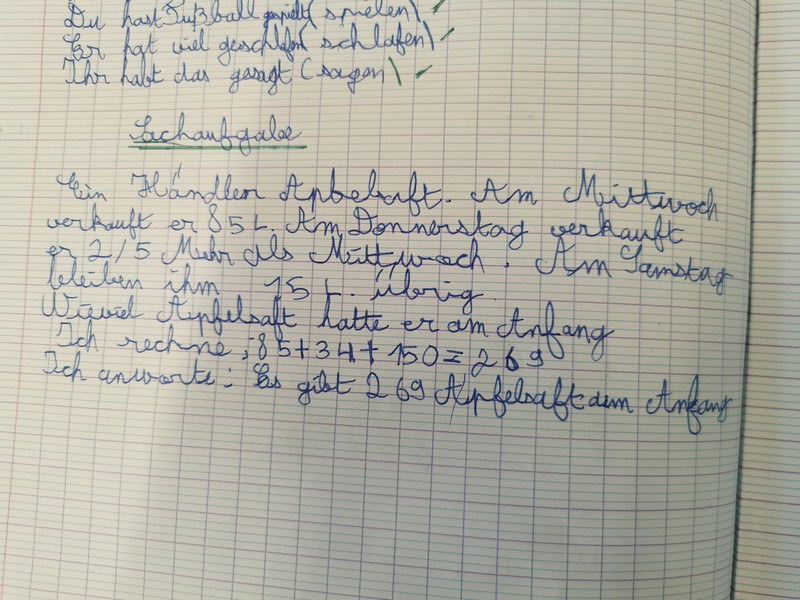 Du hast Fußball gespielt (spielen)
Er hat viel geschlafen (schlafen)
Ihr habt das gesagt (sagen)
Sachaufgabe
Ein Händler Apbelsaft. Am Mittwoch
verkauft er 85 L. Am Donnerstag verkauft
er 2/5 Mehr als Mittwoch. Am Samstag
bleiben ihm 15 L. übrig.
Wieviel Apfelsaft hatte er am Anfang
Ich rechne: 85+34+150=269
Ich anworte: Es gibt 269 Apfelsaft dem Anfang